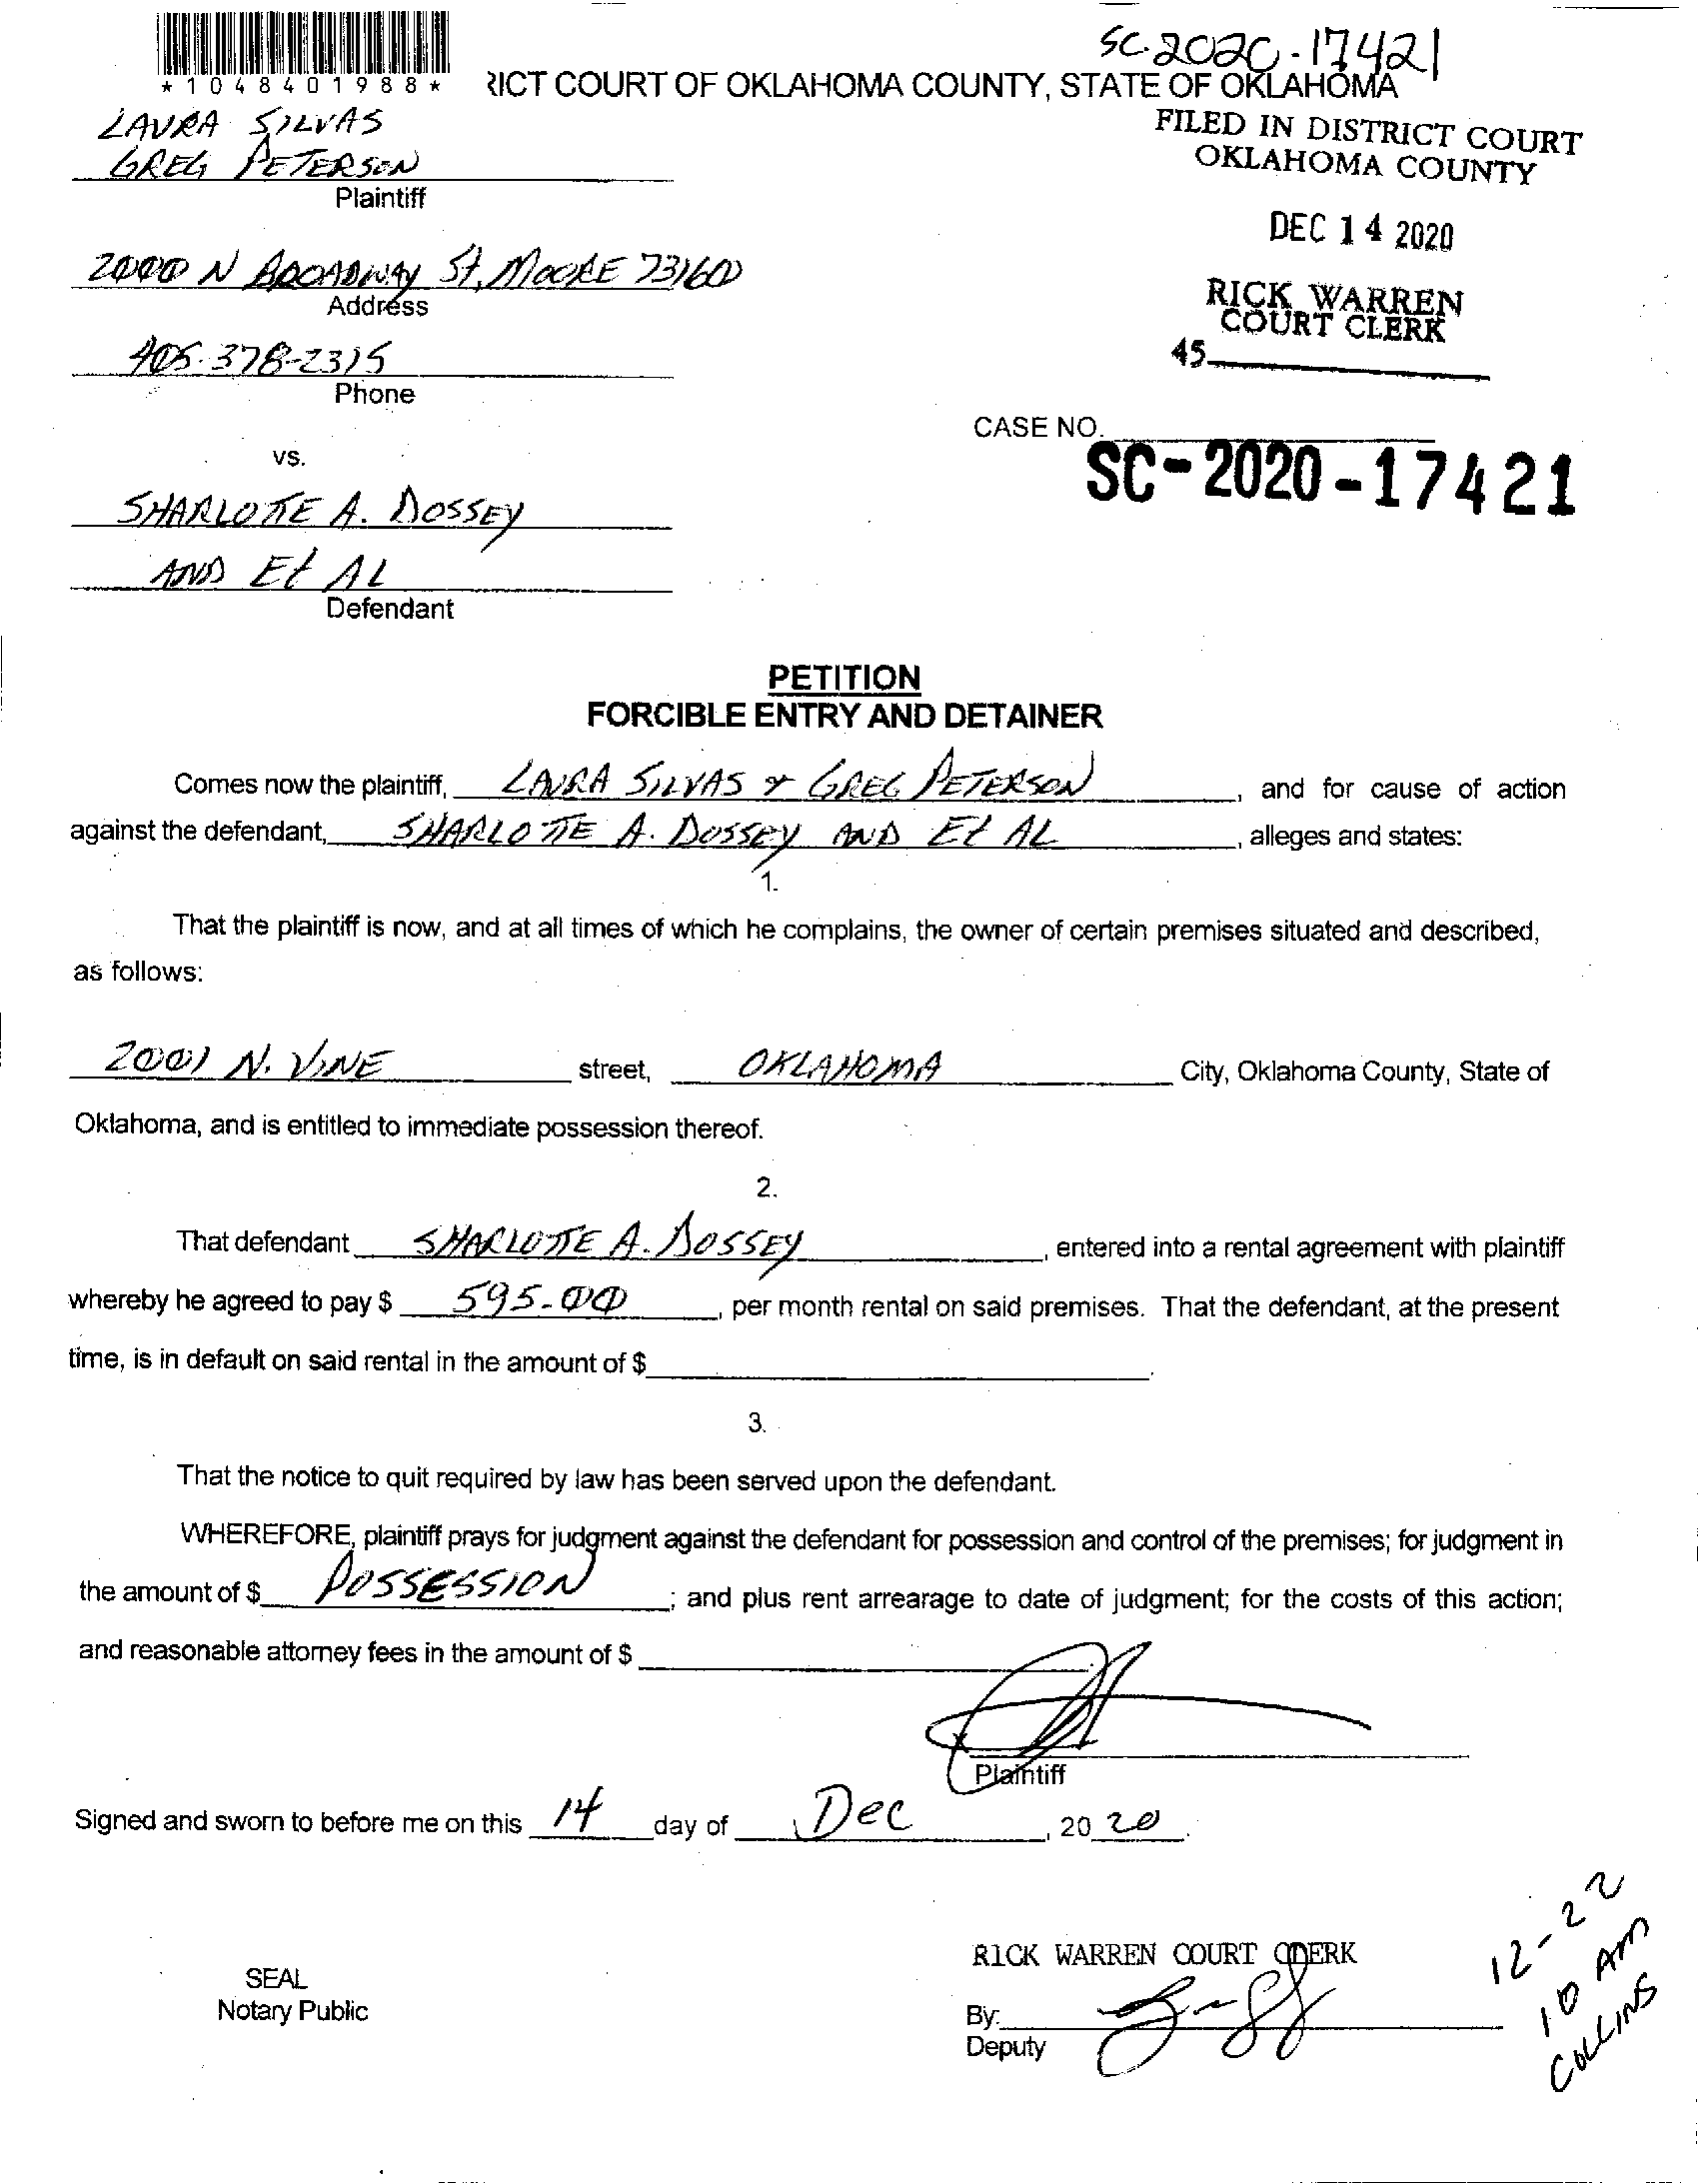 SC-2020-17421
*1048401988*
RICT COURT OF OKLAHOMA COUNTY, STATE OF OKLAHOMA
LAURA SILVAS
GREG PETERSON
Plaintiff
FILED IN DISTRICT COURT
OKLAHOMA COUNTY
DEC 14 2020
2000 N BROADWAY St, MOORE 73160
Address
RICK WARREN
COURT CLERK
405-378-2315
Phone
45
CASE NO.
SC-2020-17421
vs.
SHARLOTTE A. DOSSEY
AND Et AL
Defendant
PETITION
FORCIBLE ENTRY AND DETAINER
Comes now the plaintiff, LAURA SILVAS & GREG PETERSON, and for cause of action
against the defendant, SHARLOTTE A. DOSSEY AND Et AL, alleges and states:
1.
That the plaintiff is now, and at all times of which he complains, the owner of certain premises situated and described,
as follows:
2001 N. VINE street, OKLAHOMA City, Oklahoma County, State of
Oklahoma, and is entitled to immediate possession thereof.
2.
That defendant SHARLOTTE A. DOSSEY, entered into a rental agreement with plaintiff
whereby he agreed to pay $ 595.00, per month rental on said premises. That the defendant, at the present
time, is in default on said rental in the amount of $.
3.
That the notice to quit required by law has been served upon the defendant.
WHEREFORE, plaintiff prays for judgment against the defendant for possession and control of the premises; for judgment in
the amount of $ POSSESSION; and plus rent arrearage to date of judgment; for the costs of this action;
and reasonable attorney fees in the amount of $
x
Plaintiff
Signed and sworn to before me on this 14 day of Dec, 20 20.
SEAL
Notary Public
RICK WARREN COURT CLERK
By:
Deputy
12-22
10 AM
COLLINS